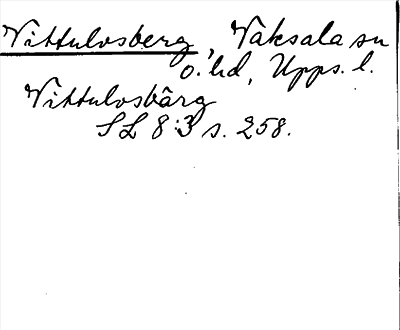 Vittulosberg, Vaksala sn
o. hd, Upps. l.
Vittulosbärg
SL 8:3 s. 258.